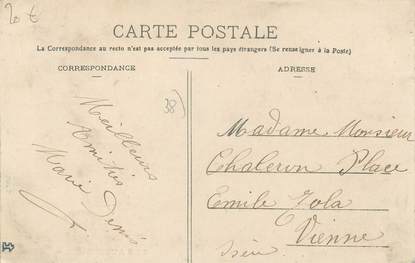 20 €
CARTE POSTALE
La Correspondance au recto n'est pas acceptée par tous les pays étrangers (Se renseigner à la Poste)
CORRESPONDANCE
ADRESSE
38
Meilleurs
Amitiés
Marie Denis
Madame Monsieur
Chaleron Place
Emile Zola
Vienne
Isère